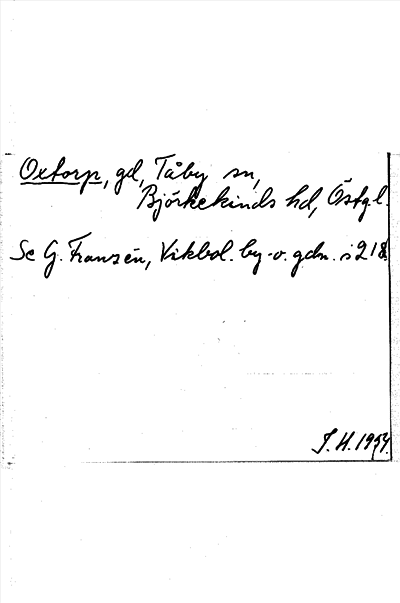 Oxtorp, gd, Tåby sn,
Björkekinds hd, Östgl.
Se G. Franzén, Vikbol. by- o. gdn. s 218.
J. H. 1954.